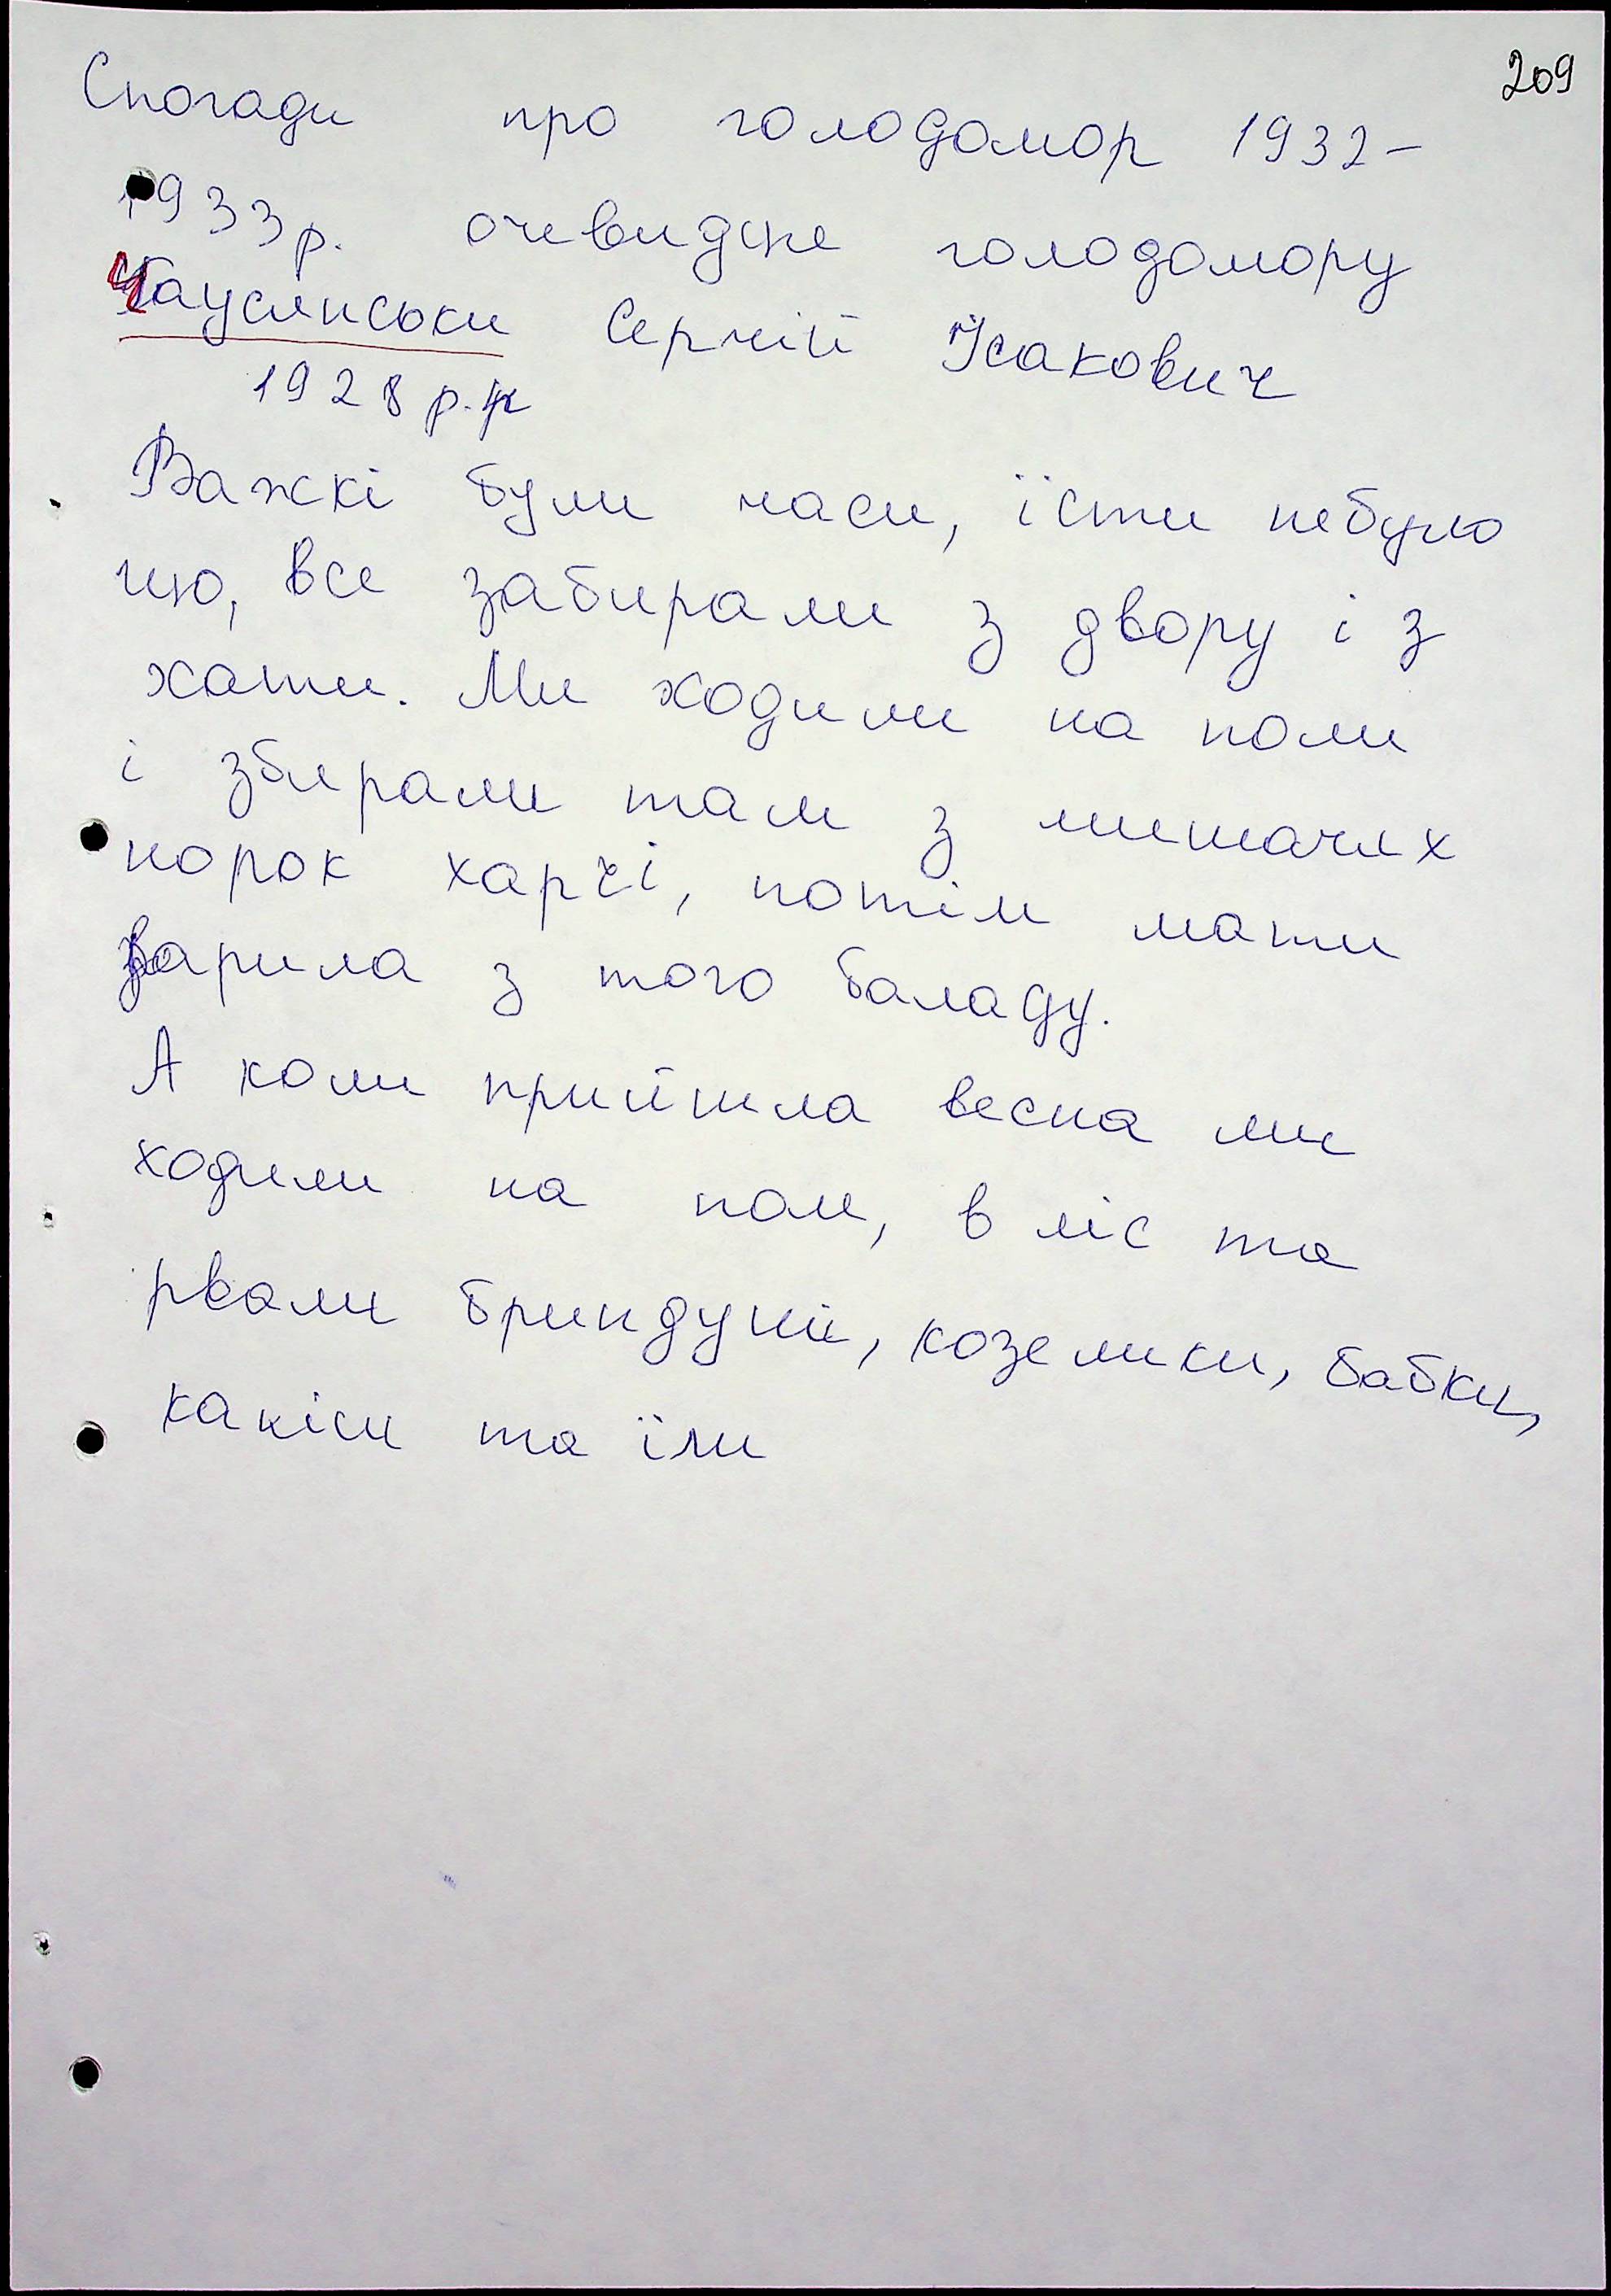 209
Спогади про голодомор 1932-
1933р. очевидне голодомору
Чауслиськи Сергій Ісакович
1928 р.н
Важкі були часи, їсти небуло
що, все забирали з двору і з
хати. Ми ходили на поли
і збирали там з мишачих
норок харчі, потім мати
варила з того баладу.
А коли прийшла весна ми
ходили на поли, в ліс та
рвали бриндуші, козелики, бабки,
каліси та їли